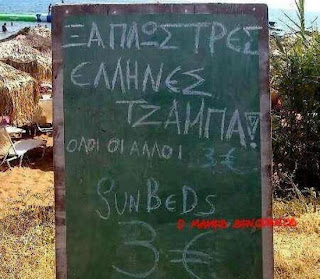 ΞΑΠΛΩΣΤΡΕΣ
ΕΛΛΗΝΕΣ
ΤΖΑΜΠΑ!
ΟΛΟΙ ΟΙ ΑΛΛΟΙ 3€
SUNBEDS
3€